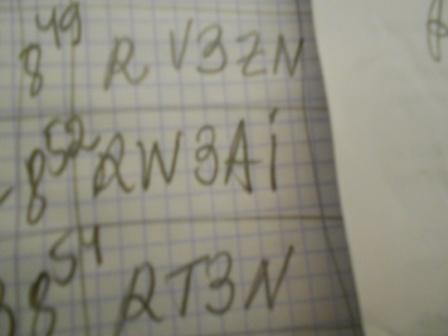 8⁴⁹ RV3ZN
8⁵² RW3Ai
8⁵⁴ RT3N